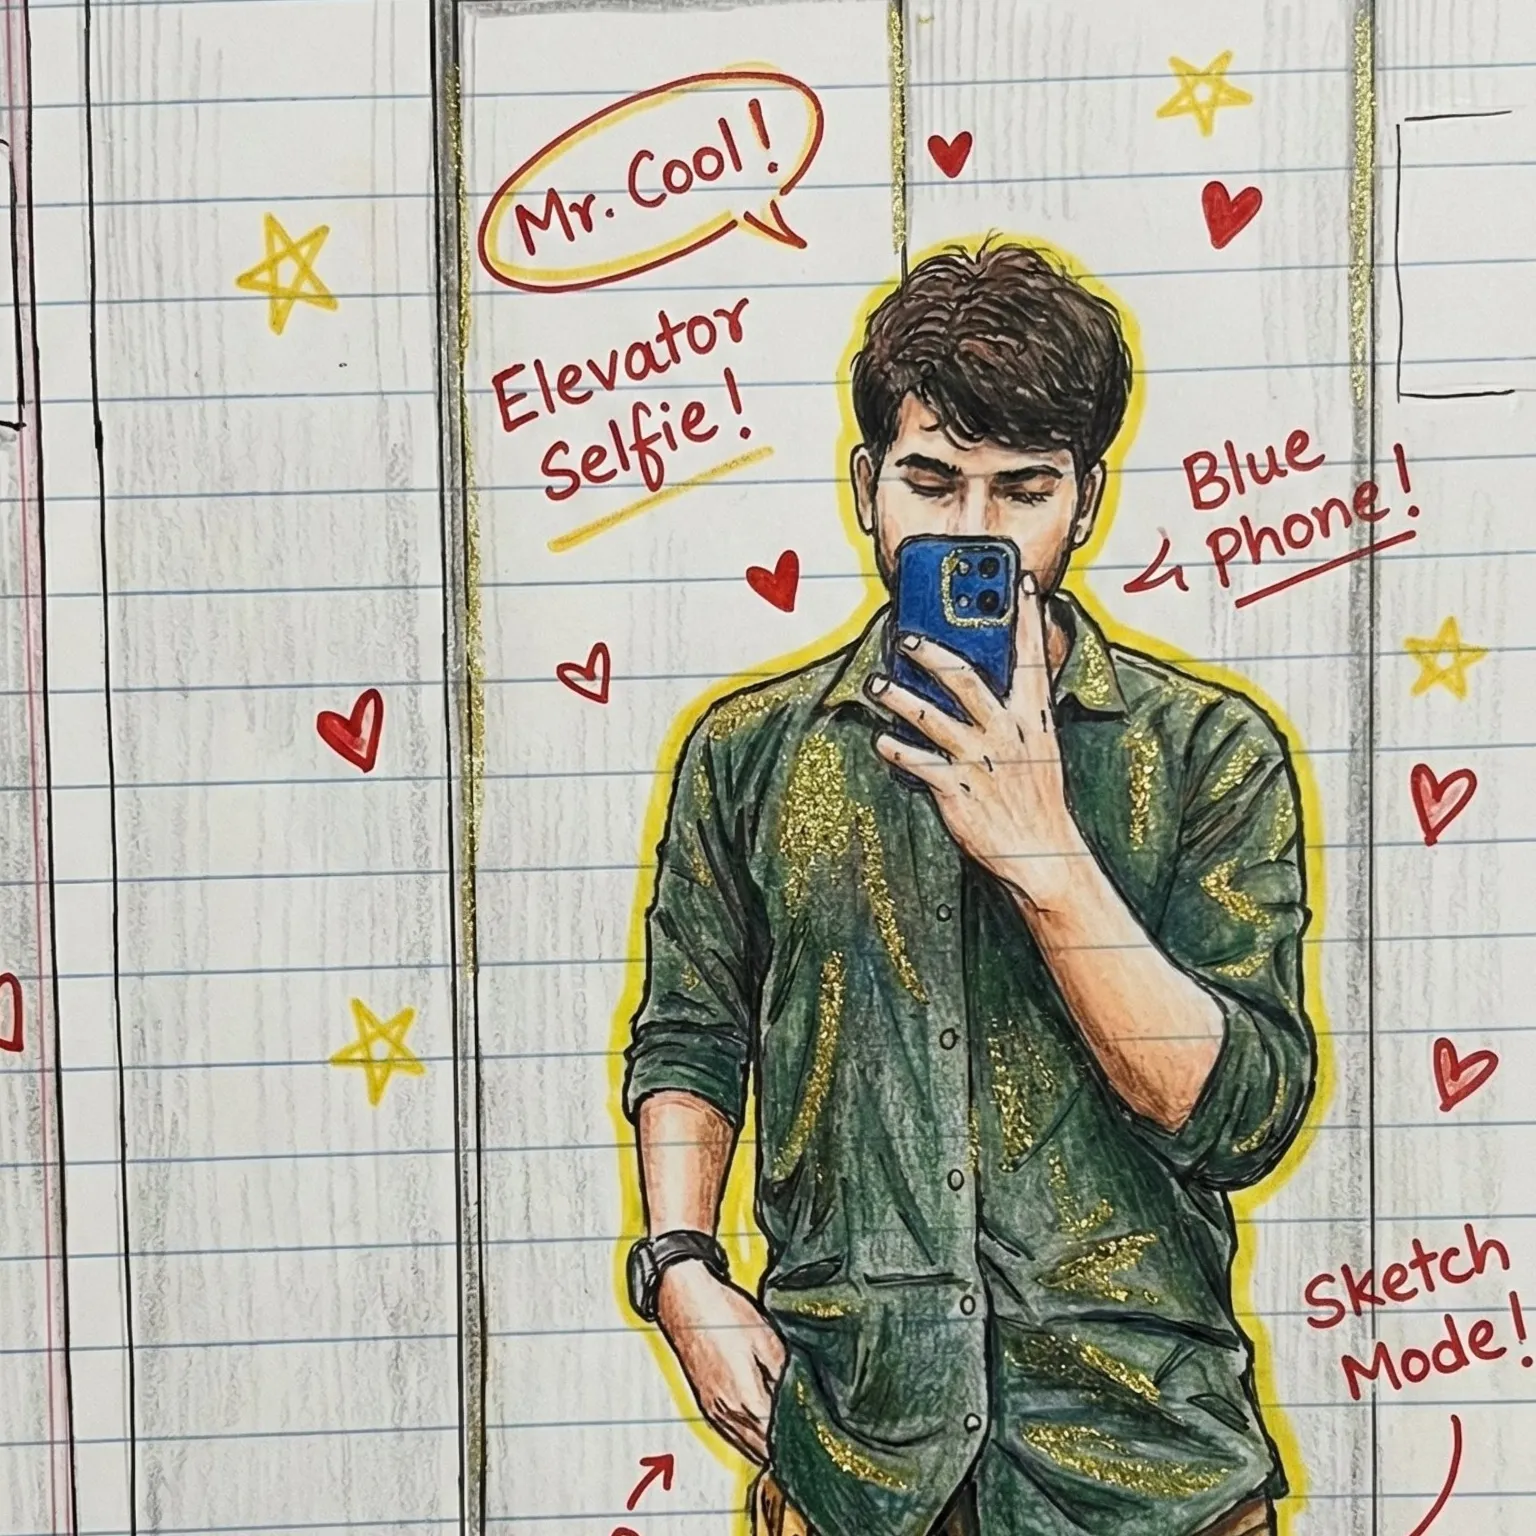 Mr. Cool!
Elevator
Selfie!
Blue
Phone!
Sketch
Mode!